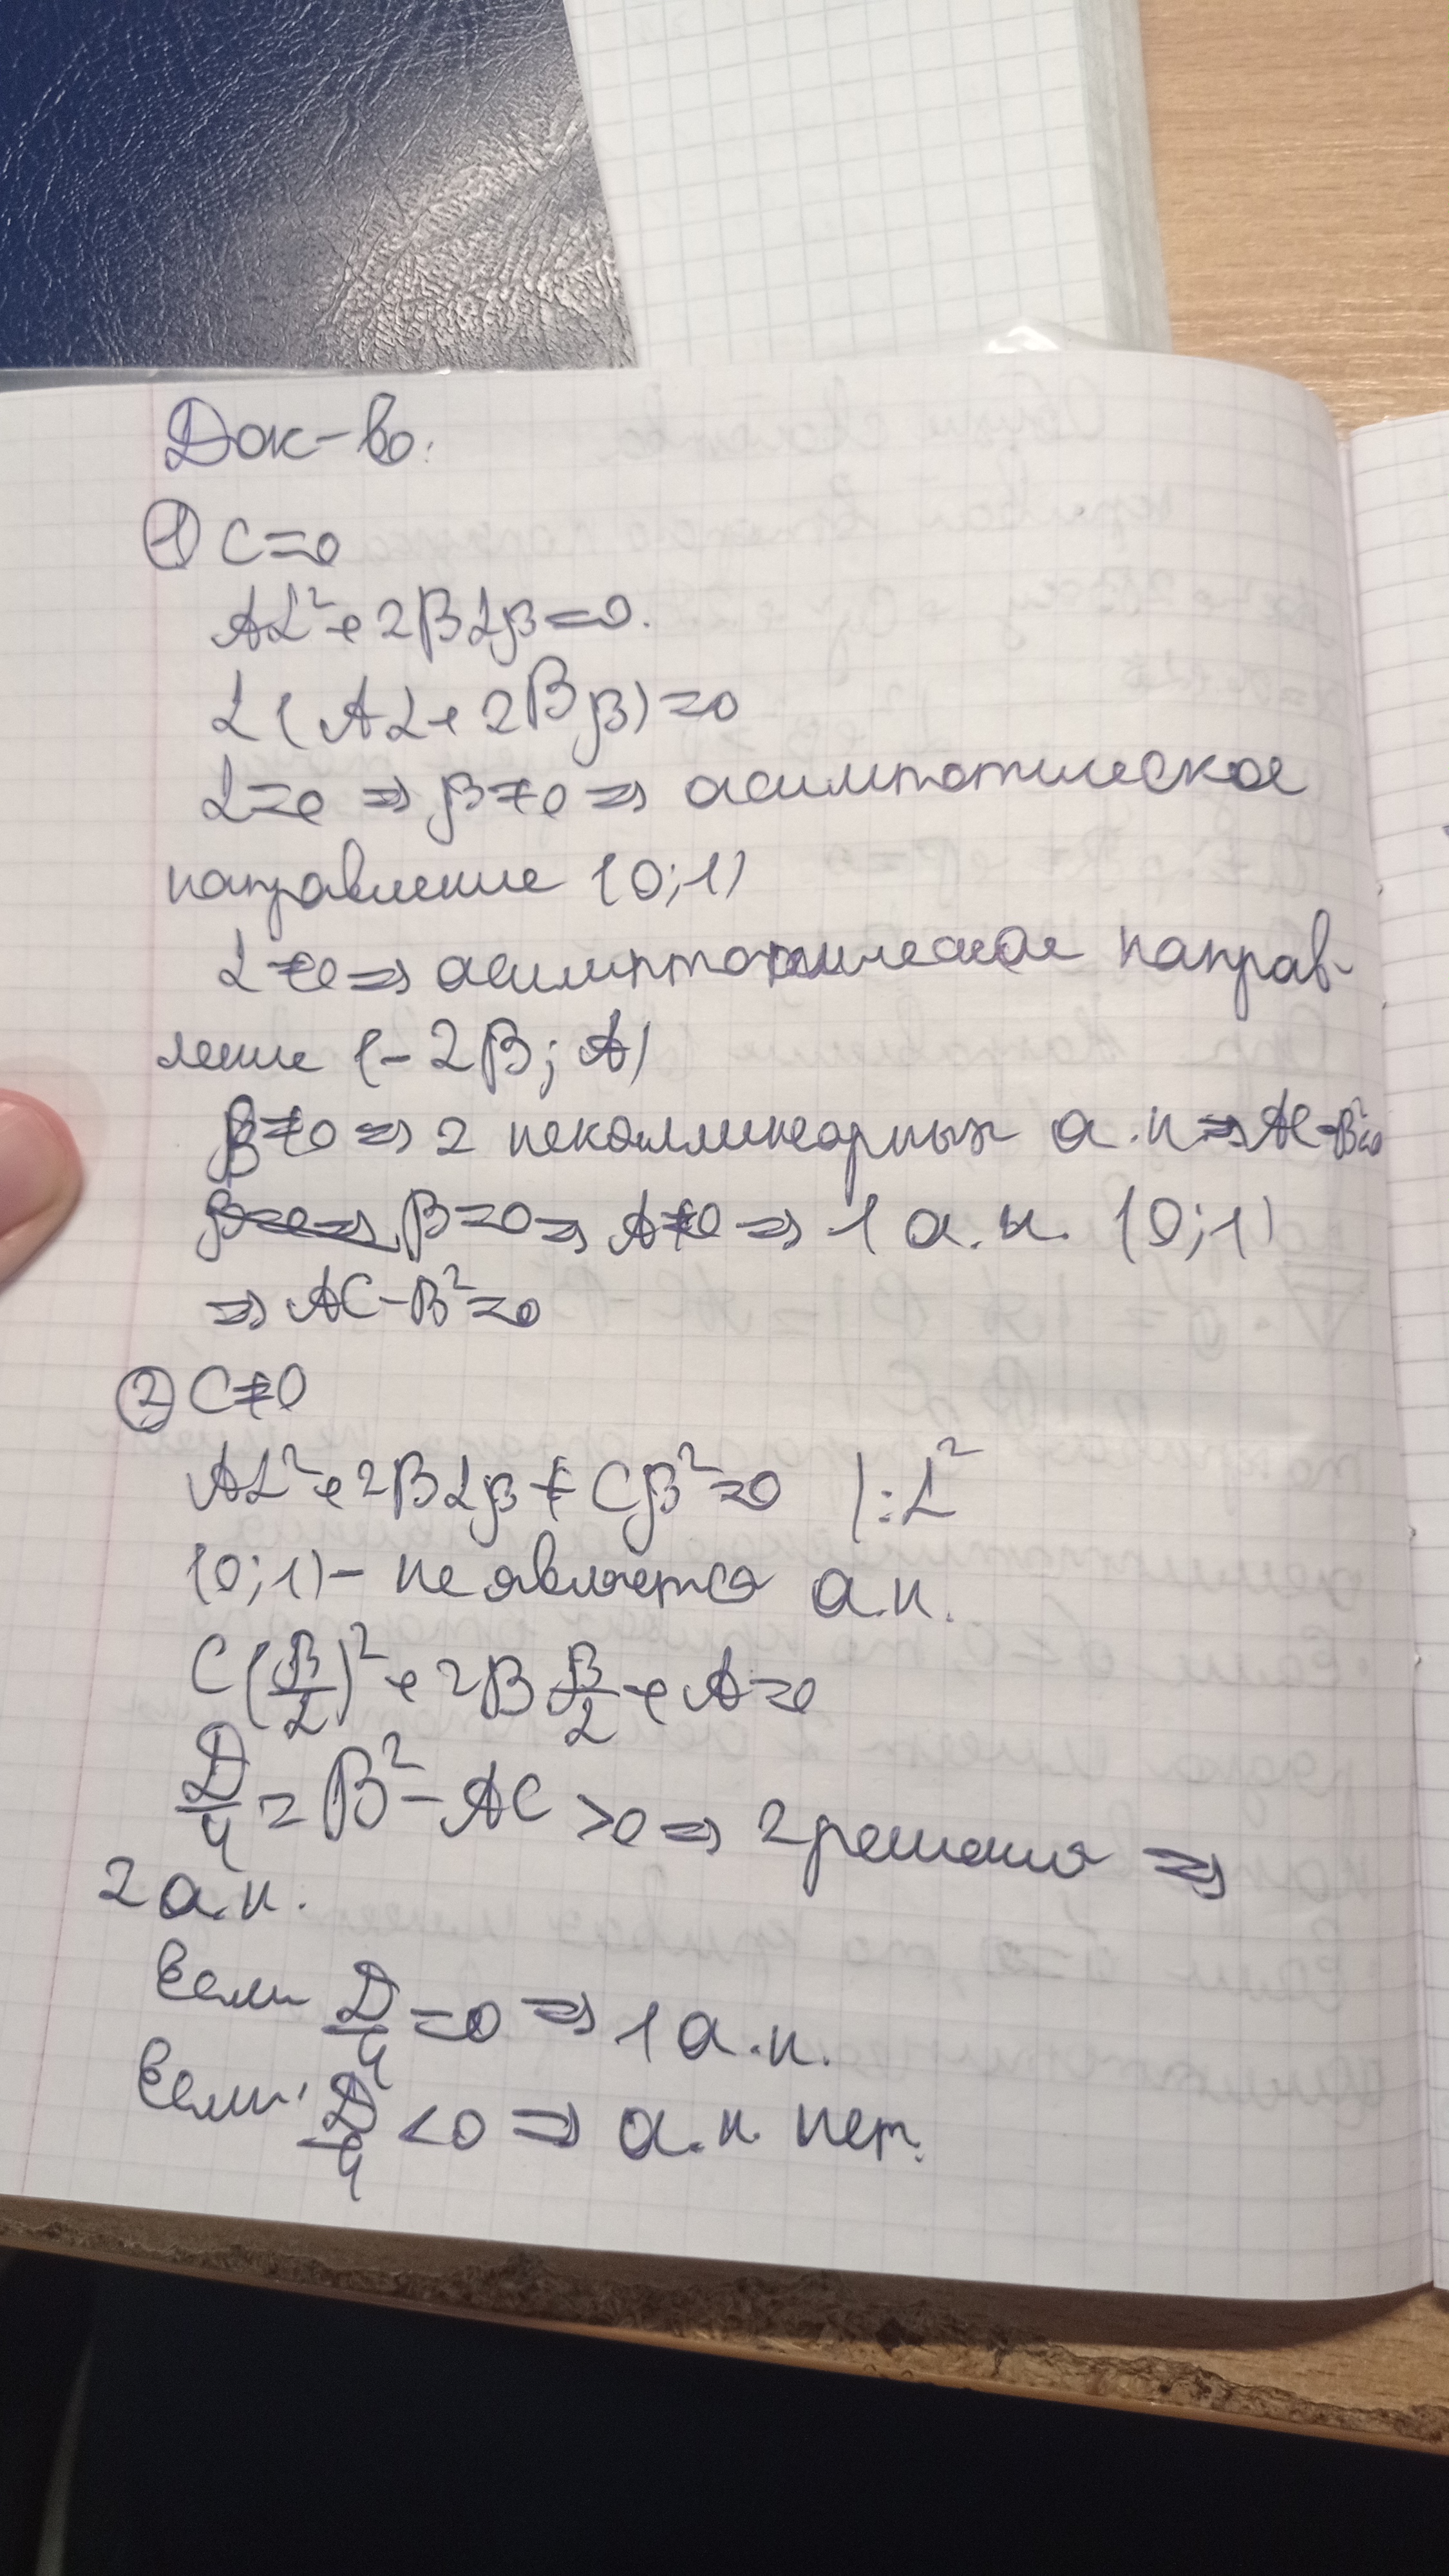 Док-во:
① C=0
Aα²+2Bαβ=0.
α(Aα+2Bβ)=0
α=0 ⇒ β≠0 ⇒ асимптотическое
направление (0;1)
α≠0 ⇒ асимптотическое направ-
ление (-2B; A)
B≠0 ⇒ 2 неколлинеарных а.н ⇒ AC-B²<0
B=0 ⇒ A≠0 ⇒ 1 а.н. (0;1)
⇒ AC-B²=0
② C≠0
Aα²+2Bαβ+Cβ²=0 |:α²
(0;1) - не является а.н.
C(β/α)²+2B β/α+A=0
D/4 = B²-AC >0 ⇒ 2 решения ⇒
2 а.н.
Если D/4 =0 ⇒ 1 а.н.
Если D/4 <0 ⇒ а.н. нет.